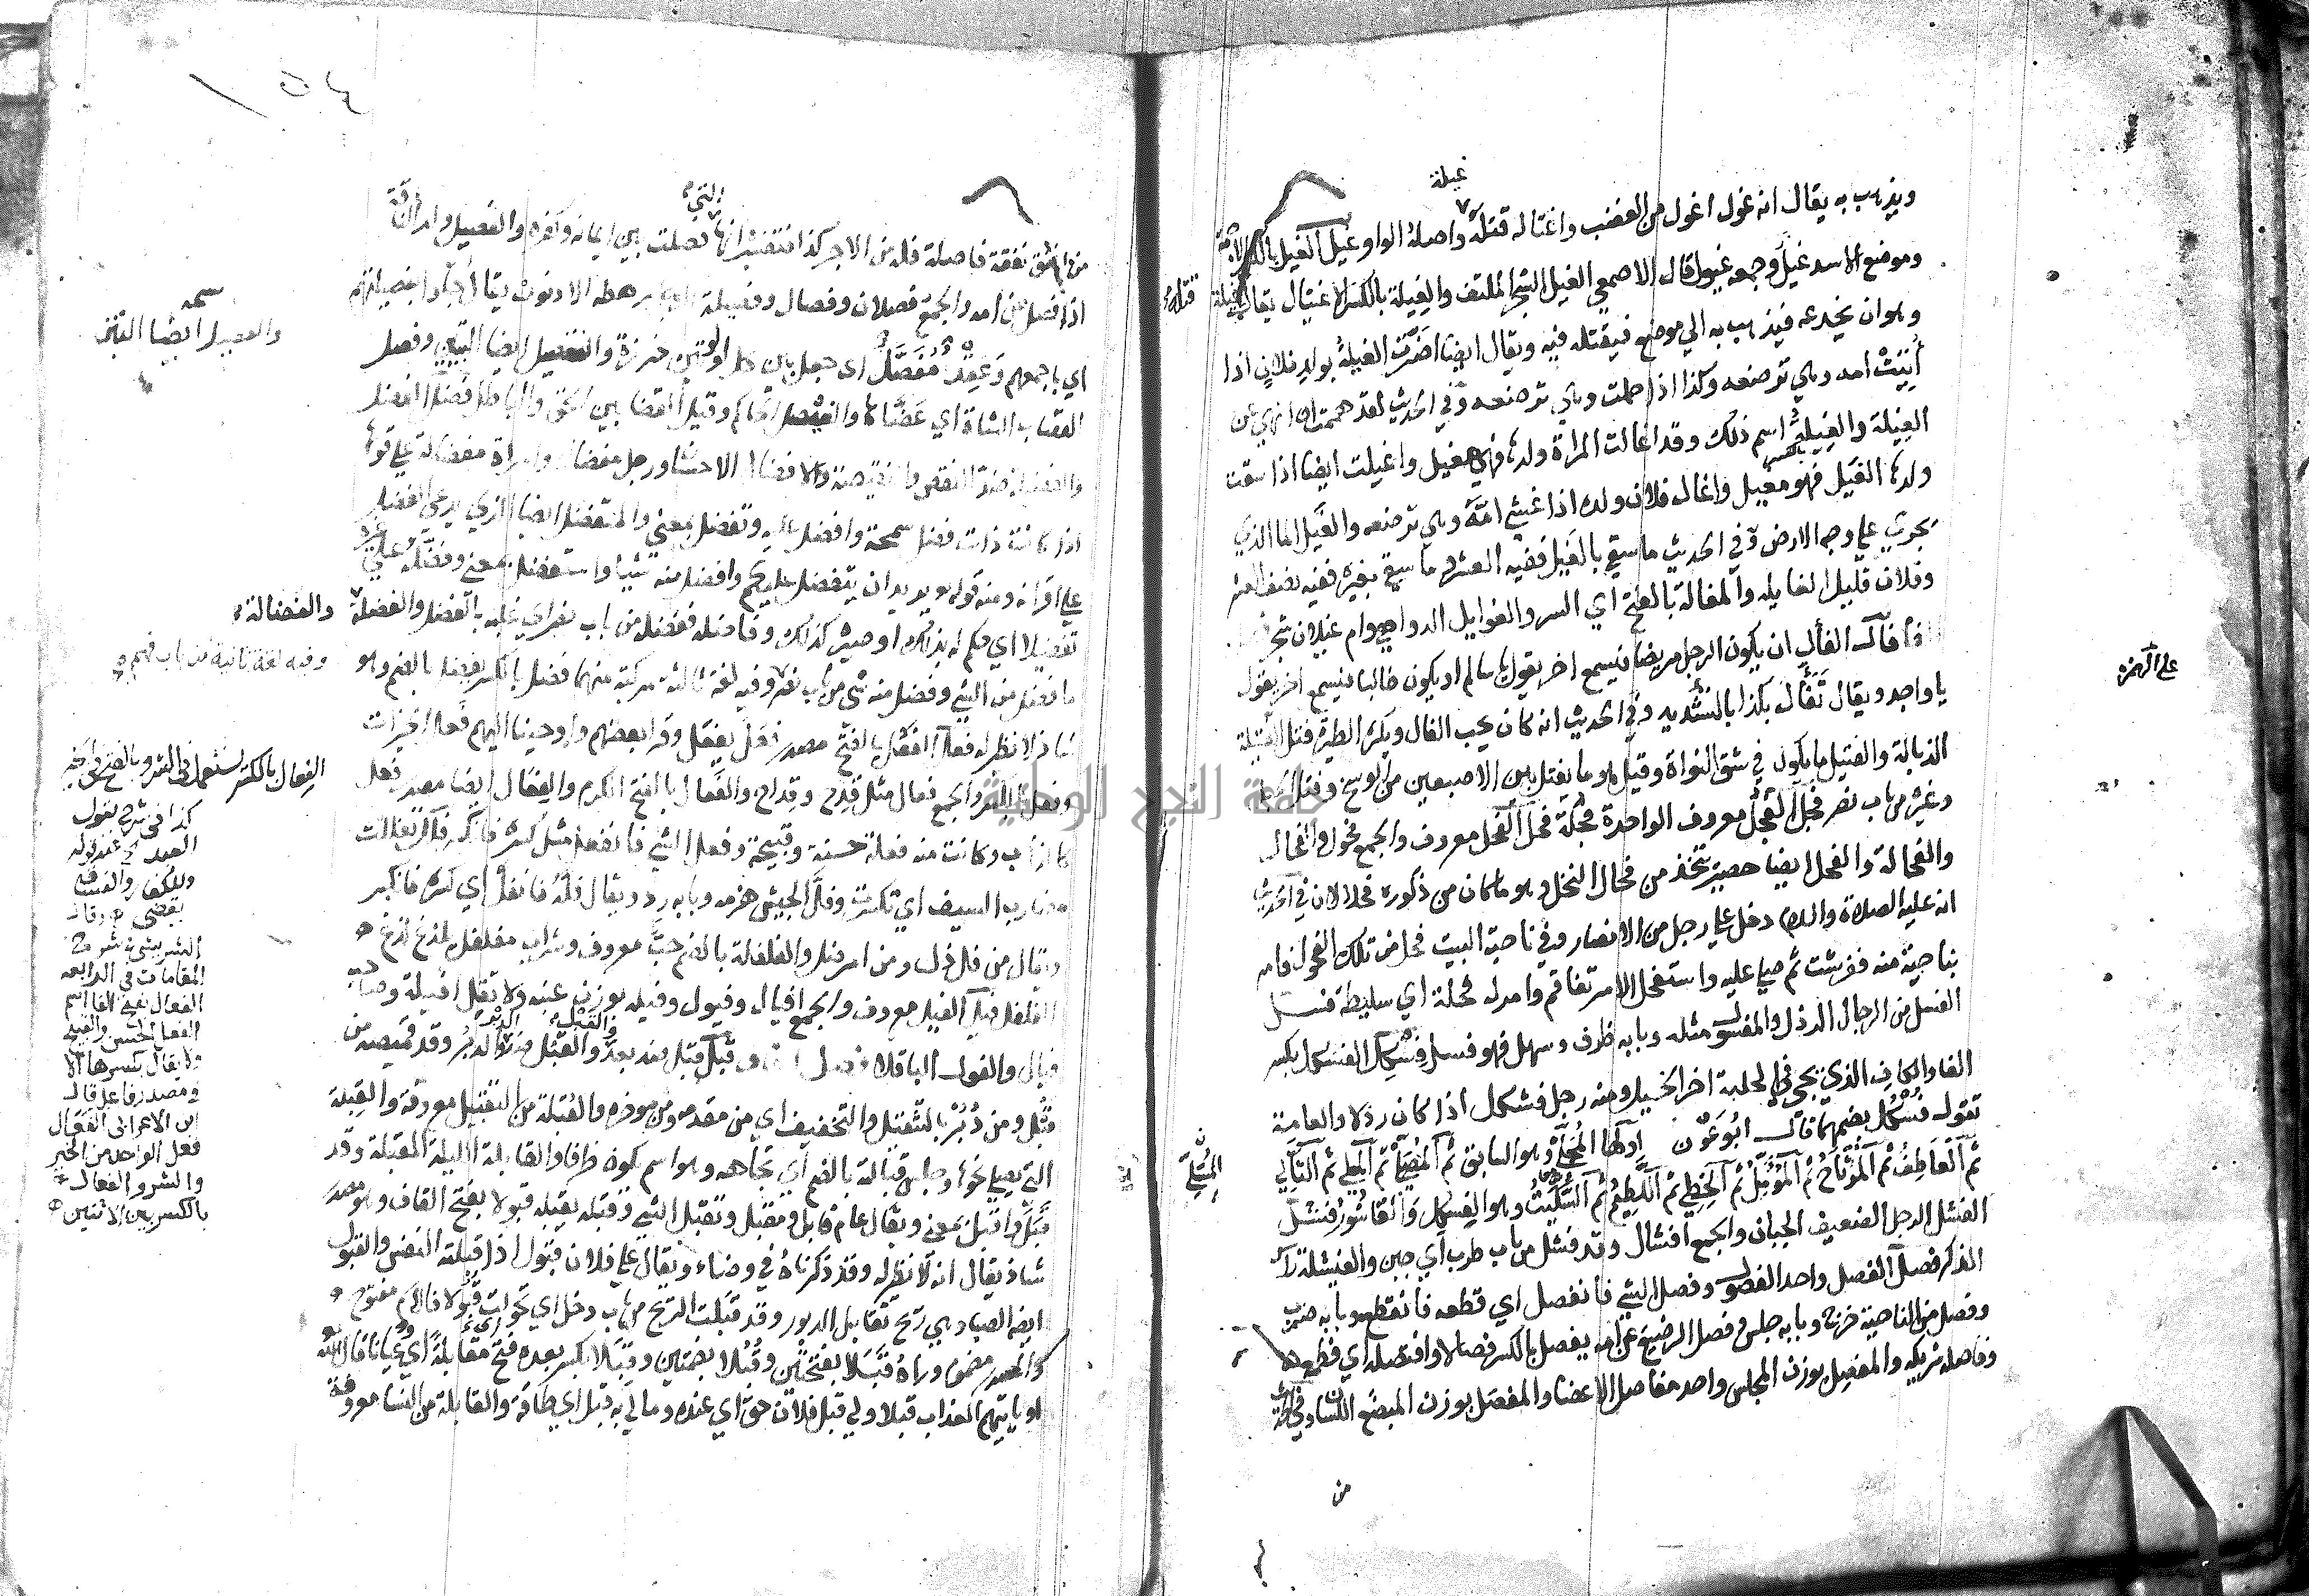 غيلة
ويذهب به يقال انه غول اغول من الغضب واغتاله قتله واصله الواو غيل الغيل بالكسر الاجمة
وموضع الاسد غيل وجمعه غيول قال الاصمعي الغيل الشجر الملتف والغيلة بالكسر الاغتيال يقال قتله غيلة
وهو ان يخدعه فيذهب به الي موضع فيقتله فيه ويقال ايضا اضرت الغيلة بولد فلان اذا
أتيت امه وهي ترضعه وكذا اذا حملت وهي ترضعه وفي الحديث لقد هممت ان انهي عن
الغيلة والغيلة اسم ذلك وقد اغالت المراة ولدها فهي مغيل واغيلت ايضا اذا سقت
ولدها الغيل فهو مغيل واغال فلان ولده اذا غشي امه وهي ترضعه والغيل الما الذي
يجري علي وجه الارض وفي الحديث ما سقي بالغيل ففيه العشر وما سقي بغيره ففيه نصف العشر
وفلان قليل الغايله والمغالة بالفتح اي السر والغوايل الدواهي وام غيلان شجر
فأل الفأل ان يكون الرجل مريضا فيسمع اخر يقول يا سالم او يكون طالبا فيسمع اخر يقول
يا واجد ويقال تفأل بكذا بالتشديد وفي الحديث انه كان يحب الفال ويكره الطيرة فتل الفتيلة
الذبالة والفتيل ما يكون في شق النواة وقيل هو ما يفتل بين الاصبعين من الوسخ وفتل الحبل
وغيره من باب نصر فجل الفجل معروف الواحدة فجلة فحل الفحل معروف والجمع فحول والفحال
والفحالة والفحل ايضا حصير تتخذ من فحال النخل وهو ما كان من ذكوره فحلا لاناثه في الحديث
انه عليه الصلاة والسلام دخل علي رجل من الانصار وفي ناحية البيت فحل من تلك الفحول فامر
بناحية منه ففرشت ثم صلي عليه واستفحل الامر تفاقم وامراة فحلة اي سليطة فسل
الفسل من الرجال الرذل والمفسول مثله وبابه ظرف وسهل فهو فسل فسكل الفسكل بكسر
الفا والكاف الذي يجي في الحلبة اخر الخيل ومنه رجل فسكل اذا كان رذلا والعامة
تقول فسكل بضمهما قال ابو عون اولها المجلي وهو السابق ثم المصلي ثم المسلي ثم التالي
ثم العاطف ثم المرتاح ثم المؤمل ثم الحظي ثم اللطيم ثم السكيت وهو الفسكل والقاشور فشل
الفشل الرجل الضعيف الجبان والجمع افشال وقد فشل من باب طرب اي جبن والفيشلة راس
الذكر فصل الفصل واحد الفصول وفصل الشي فانفصل اي قطعه فانقطع وبابه ضرب
وفصل من الناحية خرج وبابه جلس وفصل الرضيع عن امه يفصل بالكسر فصالا وافتصله اي فطمه
وفاصله شريكه والمفصل بوزن المجلس واحد مفاصل الاعضا والمفصل بوزن المبضع اللسان وفي الحديث
من
علي الهمزة
المسلي
١٥٤
التي
من انفق نفقة فاصلة فله من الاجر كذا فتفسيرها انها فصلت بين ايمانه وكفره والفصيل ولد الناقة
اذا فصل عن امه والجمع فصلان وفصال وفصيلة الرجل رهطه الادنون يقال جاوا بفصيلتهم
اي باجمعهم وعقد مفصل اي جعل بين كل لولوتين خرزة والتفصيل ايضا التبيين وفصل
القصاب الشاة اي عضاها والفيصل الحاكم وقيل القضا بين الحق والباطل فضل الفضل
والفضيلة ضد النقص والنقيصة والافضال الاحسان ورجل مفضال وامراة مفضالة علي قومها
اذا كانت ذات فضل سمحة وافضل عليه وتفضل بمعني والمتفضل ايضا الذي يدعي الفضل
علي اقرانه ومنه قوله يريد ان يتفضل عليكم وافضل منه شيا واستفضل بمعني وفضله علي غيره
تفضيلا اي حكم له بذلك او صيره كذلك وفاضله ففضله من باب نصر اي غلبه بالفضل والفضلة
ما فضل من الشي وفضل منه شي من باب نصر وفيه لغة ثالثة مركبة منهما فضل بالكسر يفضل بالضم وهو
شاذ لا نظير له فعل الفعل بالفتح مصدر فعل يفعل وقرا بعضهم واوحينا اليهم فعل الخيرات
وفعل بالكسر والجمع فعال مثل قدح وقداح والفعال بالفتح الكرم والفعال ايضا مصدر فعل
كالذهاب وكانت منه فعلة حسنة وقبيحة وفعل الشي فانفعل مثل كسره فانكسر فلل تفللت
مضارب السيف اي تكسرت وفل الجيش هزمه وبابه رد ويقال فله فانفل اي كسره فانكسر
ويقال من فل ذل ومن امر فل والفلفلة بالضم حب معروف وشراب مفلفل يلذع لذع
الفلفل فيل الفيل معروف والجمع افيال وفيول وفيله بوزن عنبه ولا تقل افيلة وصاحبه
فيال والفول الباقلا فصل القاف قبل قبل ضد بعد والقبل ضد الدبر وقد قميصه من
قبل ومن دبر بالتثقيل والتخفيف اي من مقدمه ومن موخره والقبلة من التقبيل معروفة والقبلة
التي يصلي نحوها وجلس قبالته بالضم اي تجاهه وهو اسم يكون ظرفا والقابلة الليلة المقبلة وقد
قبل واقبل بمعني ويقال عام قابل اي مقبل وتقبل الشي وقبله يقبله قبولا بفتح القاف وهو مصدر
شاذ يقال انه لا نظير له وقد ذكرناه في وضاء ويقال علي فلان قبول اذا قبلته النفس والقبول
ايضا الصبا وهي ريح تقابل الدبور وقد قبلت الريح من باب دخل اي تحولت قبولا فالاسم مفتوح
والمصدر مضموم وراه قبلا بفتحتين وقبلا بضمتين وقبلا بكسر بعده فتح اي مقابلة وعيانا قال الله
او ياتيهم العذاب قبلا ولي قبل فلان حق اي عنده وما لي به قبل اي طاقة والقابلة من النسا معروفة
والفصيل ايضا التبيين
والفضالة
وفيه لغة ثانية من باب فهم
الفعال بالكسر يستعمل في الشر وبالفتح في الخير
كذا في شرح
العبد عند قوله
وللكفار والفساق
بعضي وقال
الشريشي في شرح
المقامات في الرابعه
الفعال بفتح الفا اسم
الفعل الحسن والقبيح
ولا يقال بكسرها الا
في مصدر فاعل قال
ابن الاعرابي الفعال
فعل الواحد من الخير
والشر والفعال
بالكسر بين الاثنين